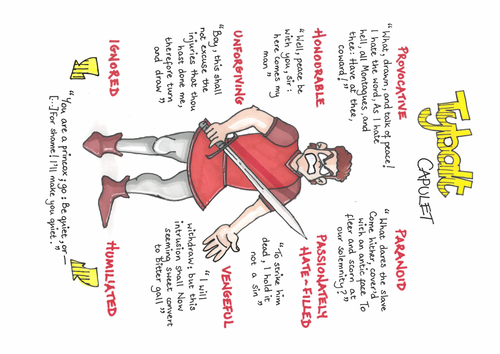 Tybalt
CAPULET
PROVOCATIVE
"What, drawn, and talk of peace!
I hate the word, As I hate
hell, all Montagues, and
thee: Have at thee,
coward!"
PARANOID
"What dares the slave
Come hither, cover'd
with an antic face To
fleer and scorn at
our solemnity?"
HONORABLE
"Well, peace be
with you, sir:
here comes my
man"
PASSIONATELY
HATE-FILLED
"To strike him
dead, I hold it
not a sin"
UNFORGIVING
"Boy, this shall
not excuse the
injuries that thou
hast done me,
therefore turn
and draw"
VENGEFUL
"I will
withdraw: but this
intrusion shall Now
seeming sweet convert
to Bitter gall"
IGNORED
HUMILIATED
"You are a princox; go: Be quiet, or—
[...] For shame! I'll make you quiet."